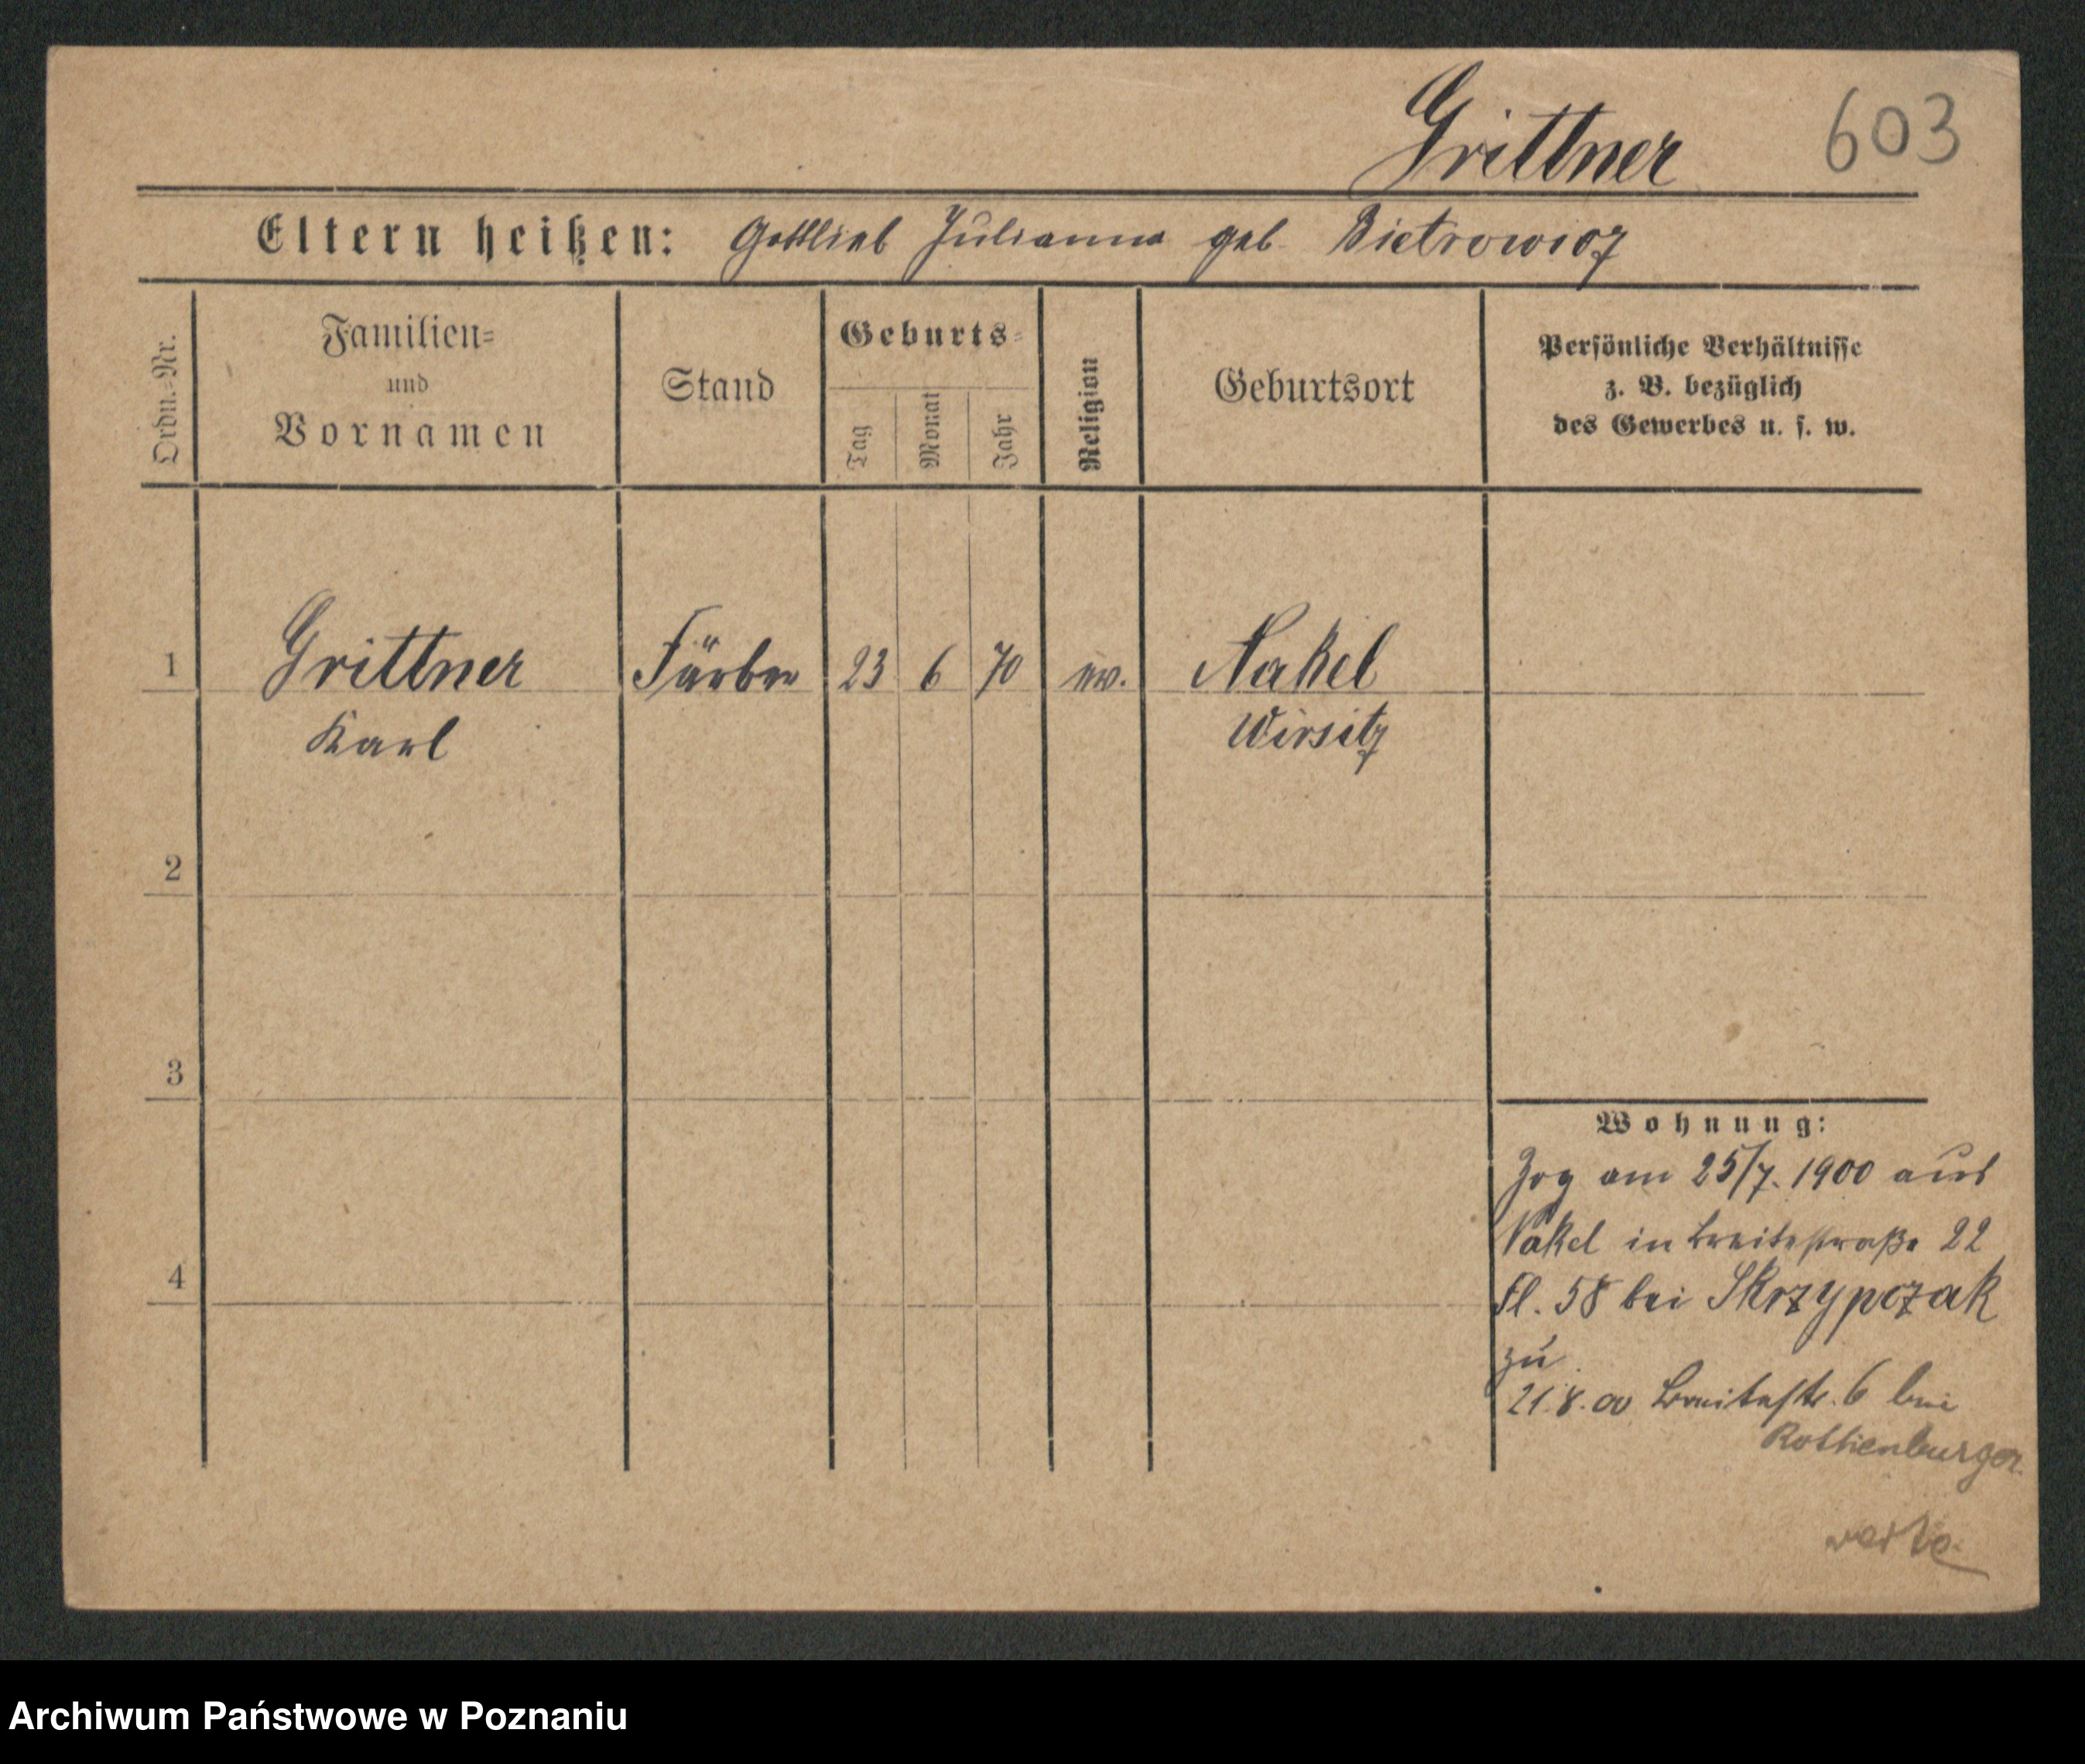 Grittner 603
Eltern heißen: Gottlieb Julianna geb. Bietrowicz
Ordn.-Nr.
Familien-
und
Vornamen
Stand
Geburts-
Tag
Monat
Jahr
Religion
Geburtsort
Persönliche Verhältnisse
z. B. bezüglich
des Gewerbes u. s. w.
1 Grittner Färber 23 6 70 ev. Nakel
Karl Wirsitz
2
3
Wohnung:
Zog am 25/7. 1900 aus
Nakel in Breitestraße 22
4
Fl. 58 bei Skrzypczak
zu.
21.8.00 Breitestr. 6 bei
Rothenburger
Archiwum Państwowe w Poznaniu